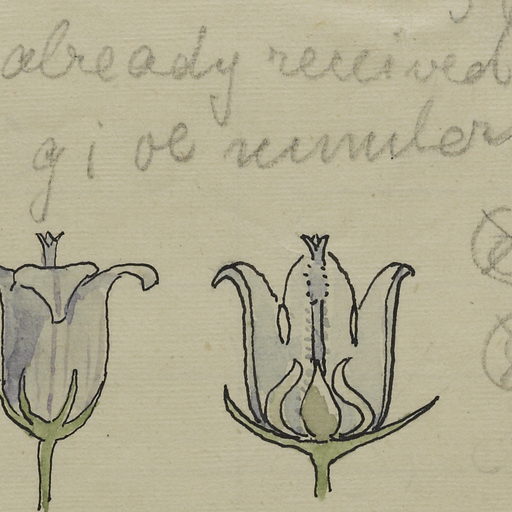 already received
g i ve number